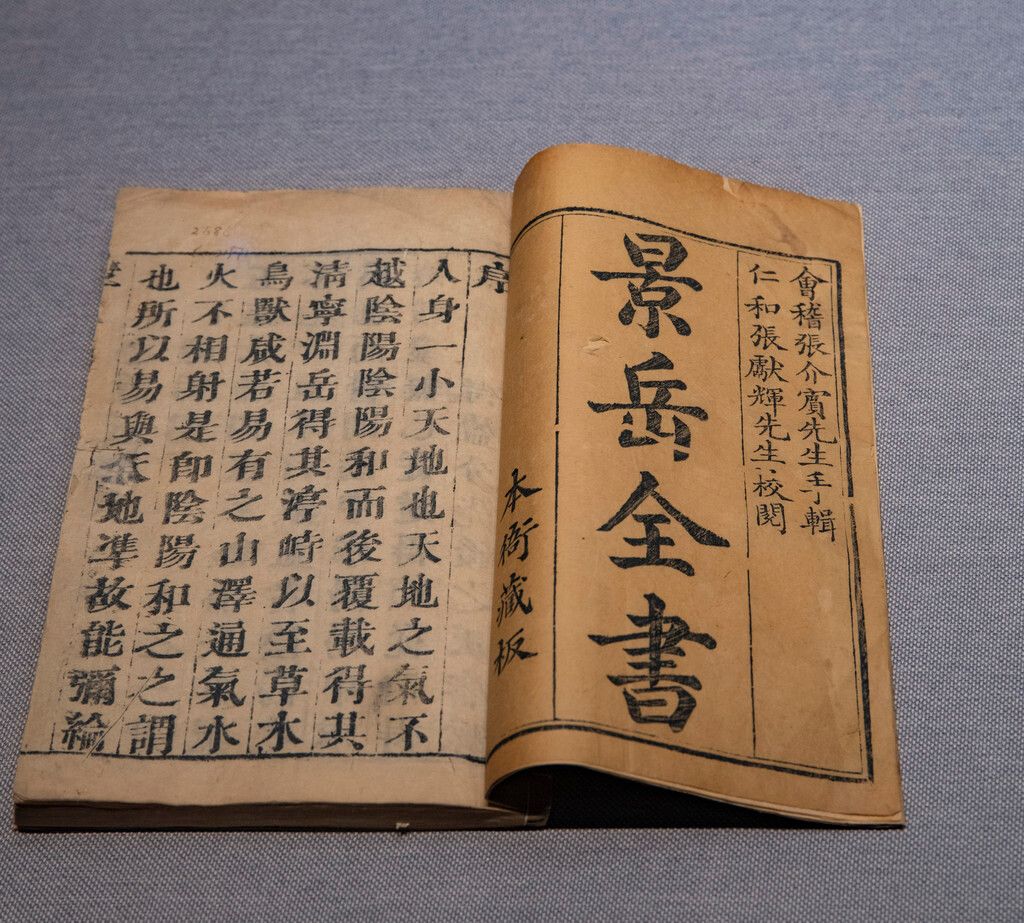 會稽張介賓先生手輯
仁和張獻輝先生校閱
景岳全書
本衙藏板
序
人身一小天地也天地之氣不
越陰陽陰陽和而後覆載得其
清寧淵岳得其渟峙以至草木
鳥獸咸若易有之山澤通氣水
火不相射是即陰陽和之之謂
也所以易與天地凖故能彌綸